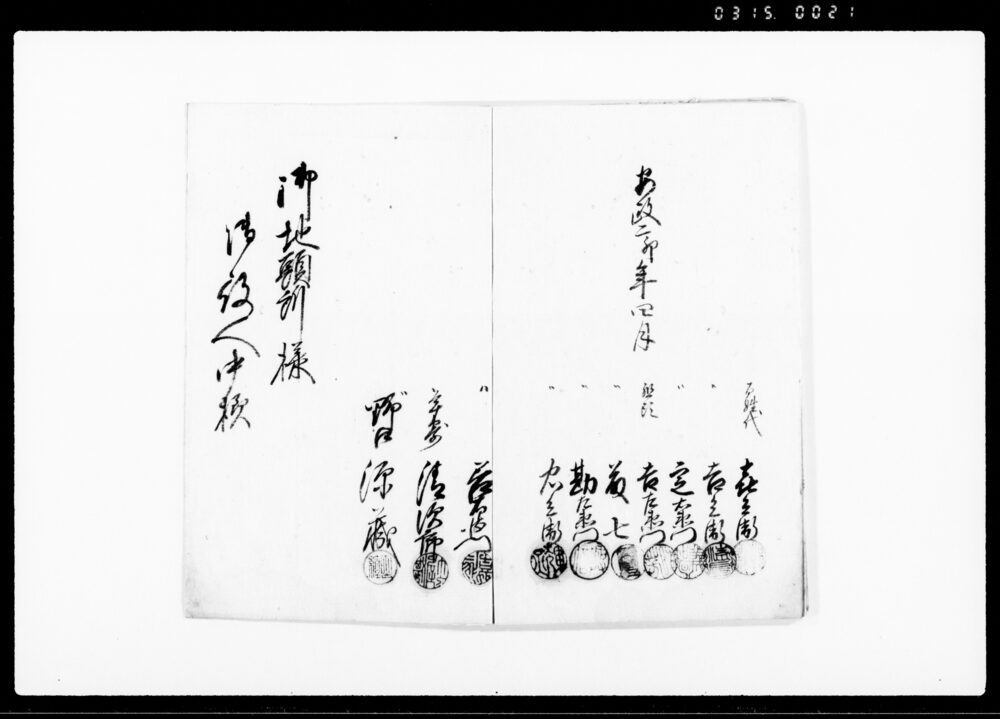 0315.0021
安政二卯年四月
百姓代
喜兵衛
〃
吉兵衛
〃
定右衛門
組頭
吉左衛門
〃
藤七
〃
勘左衛門
〃
忠兵衛
〃
名主
清次郎
野口
源蔵
御地頭所様
御役人中様